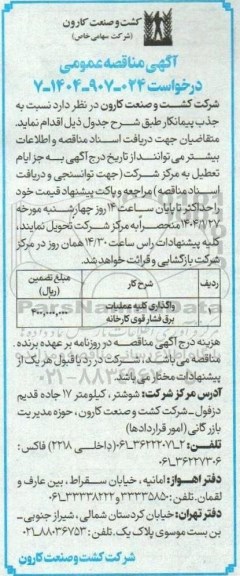 کشت و صنعت کارون
(شرکت سهامی خاص)
آگهی مناقصه عمومی
درخواست ۰۲۴-۹۰۷-۱۴۰۴-۷
شرکت کشت و صنعت کارون در نظر دارد نسبت به
جذب پیمانکار طبق شرح جدول ذیل اقدام نماید.
متقاضیان جهت دریافت اسناد مناقصه و اطلاعات
بیشتر می توانند از تاریخ درج آگهی به جز ایام
تعطیل به مرکز شرکت (جهت توانسنجی و دریافت
اسناد مناقصه) مراجعه و پاکت پیشنهاد قیمت خود
را حداکثر تا پایان ساعت ۱۴ روز چهارشنبه مورخه
منحصراً به مرکز شرکت تحویل نمایند،
کلیه پیشنهادات راس ساعت ۱۴/۳۰ همان روز در مرکز
شرکت بازگشایی و قرائت خواهد شد.
ردیف شرح کار مبلغ تضمین (ریال)
۱ واگذاری کلیه عملیات
برق فشار قوی کارخانه
هزینه درج آگهی مناقصه در روزنامه بر عهده برنده
مناقصه می باشد، شرکت در رد یا قبول هر یک از
پیشنهادات مختار می باشد.
آدرس مرکز شرکت: شوشتر، کیلومتر ۱۷ جاده قدیم
دزفول - شرکت کشت و صنعت کارون، حوزه مدیریت
بازرگانی (امور قراردادها)
تلفن: ۲-۳۶۲۲۲۰۷۱-۰۶۱ (داخلی ۲۲۱۸) فاکس:
۰۶۱-۳۶۲۲۷۳۰۶
دفتر اهواز: امانیه، خیابان سقراط، بین عارف و
لقمان. تلفن: ۳۳۳۳۵۸۵۰ و ۳۳۳۳۸۲۲۲-۰۶۱
دفتر تهران: خیابان کردستان شمالی، شیراز جنوبی -
بن بست موسوی پلاک یک. تلفن: ۸۸۰۳۶۷۵۳-۰۲۱
شرکت کشت و صنعت کارون